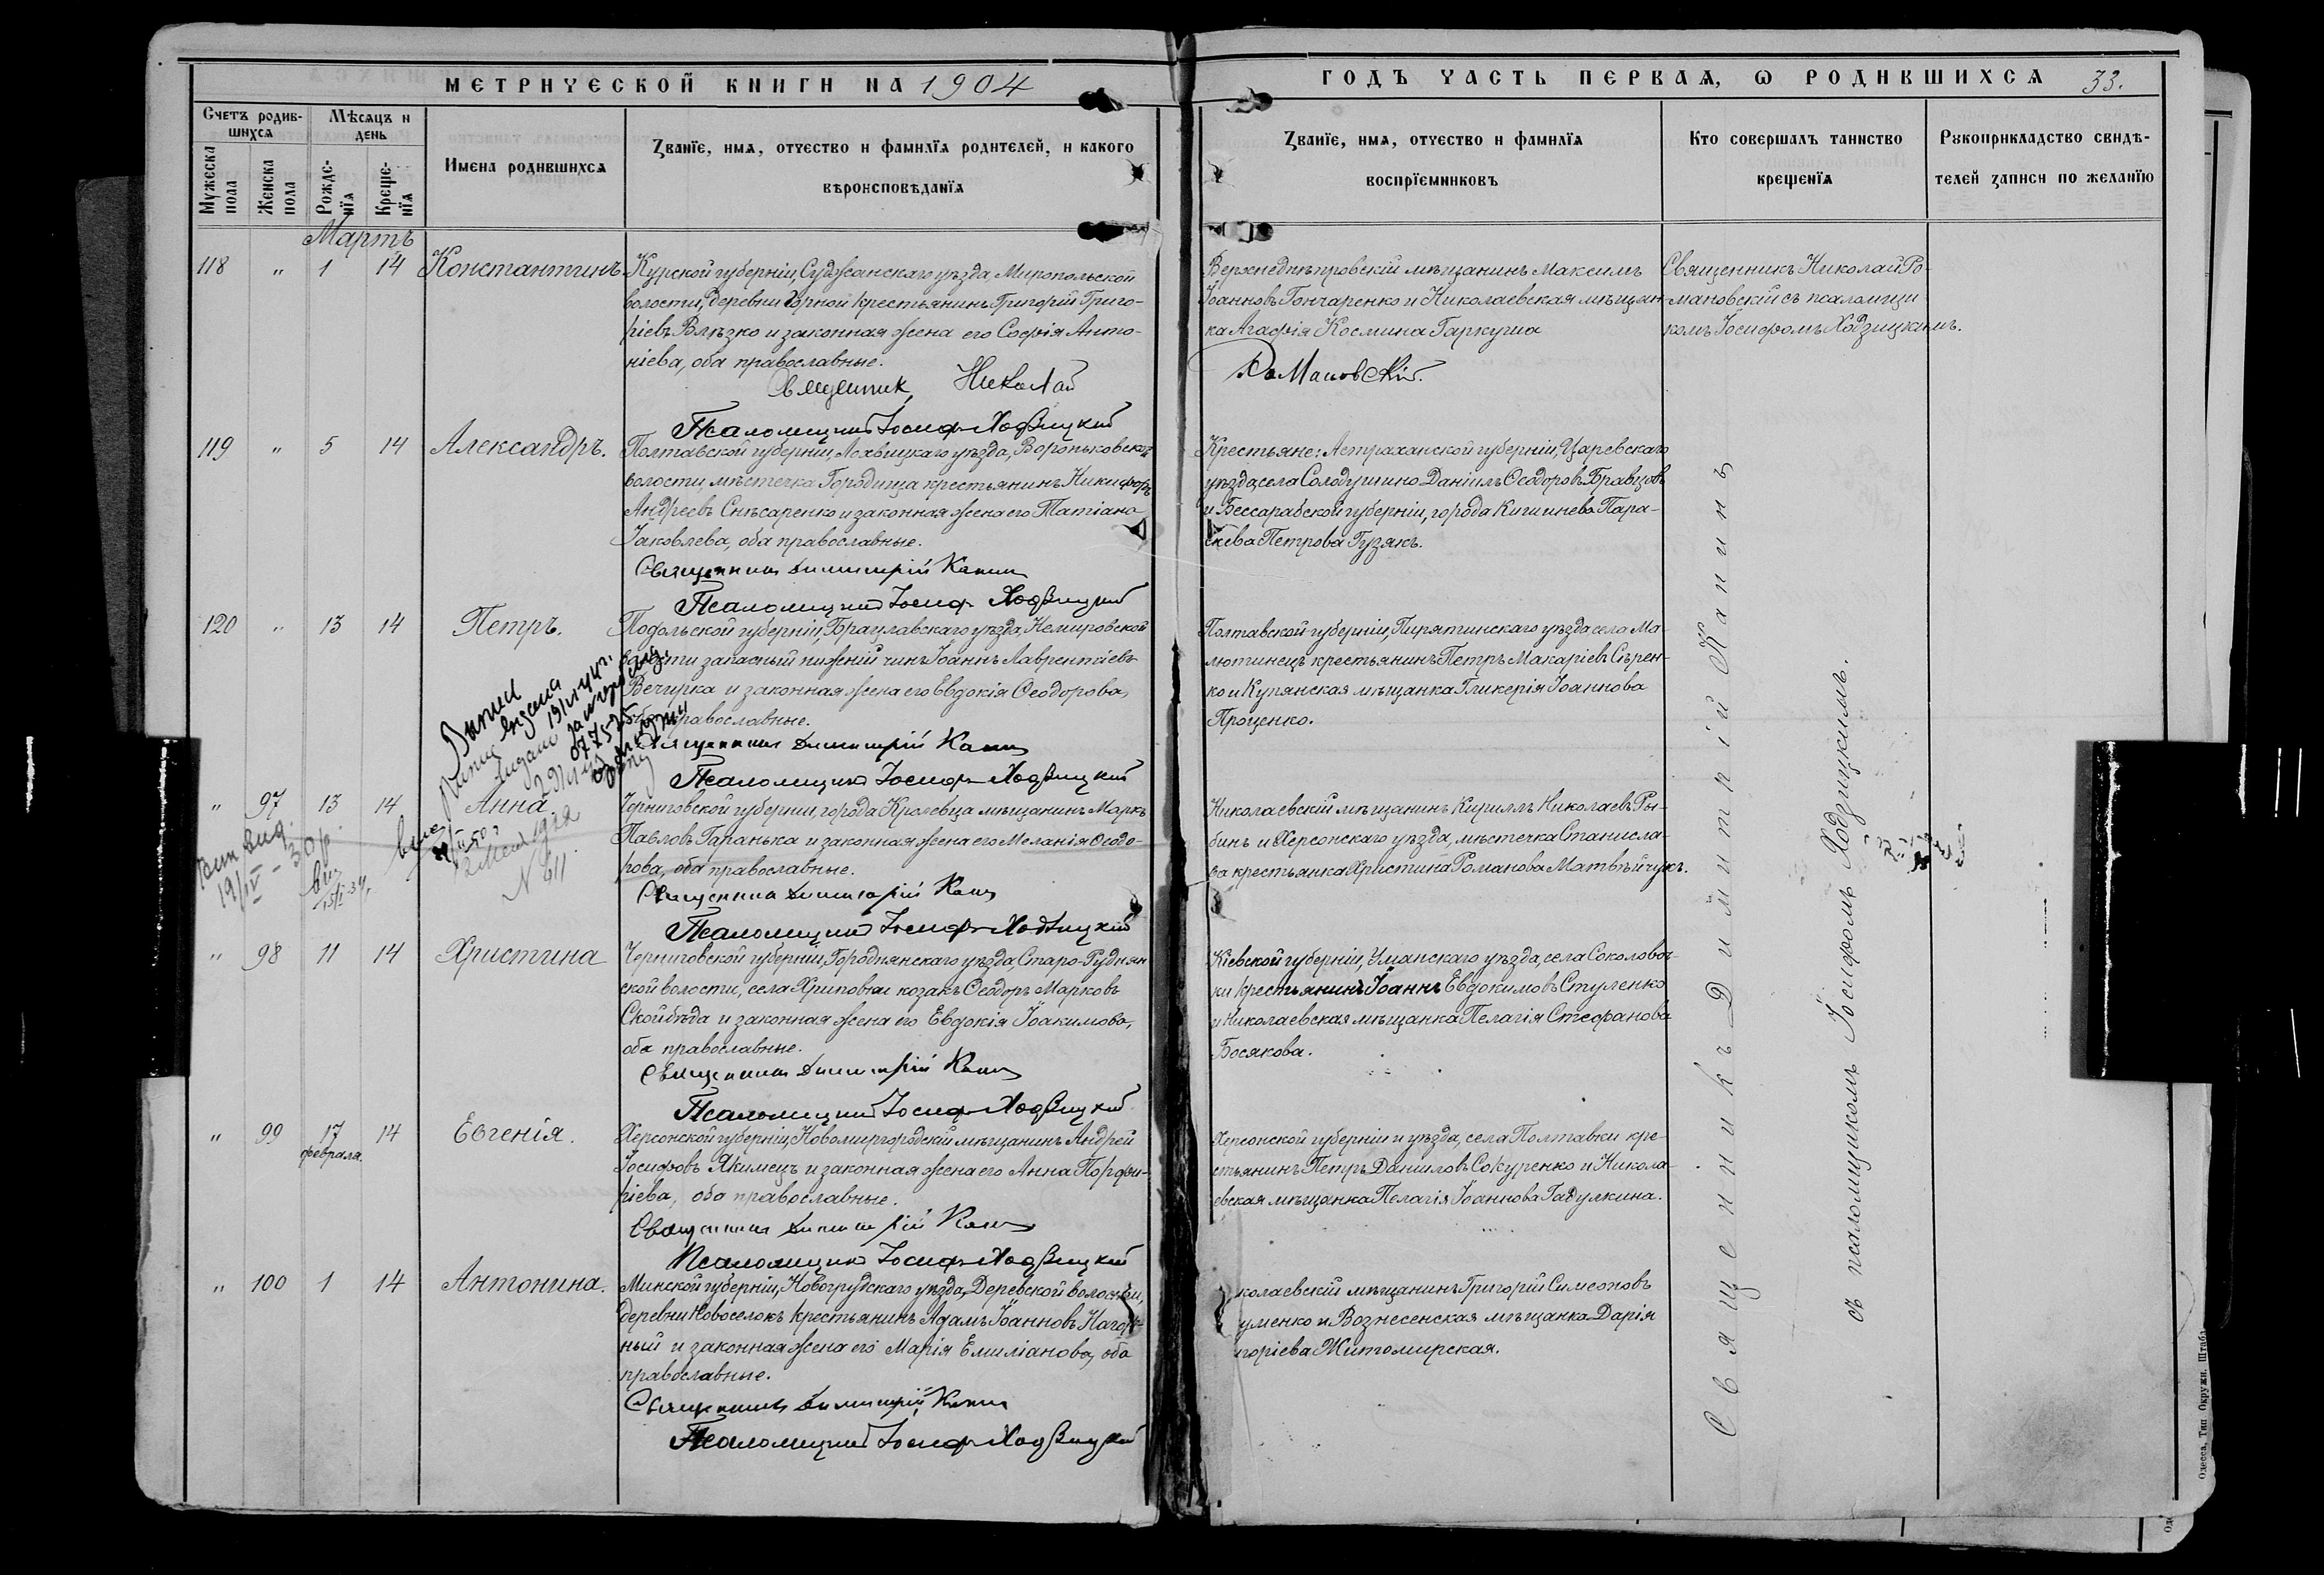 МЕТРИЧЕСКОЙ КНИГИ НА 1904
ГОДЪ ЧАСТЬ ПЕРВАЯ, Ѡ РОДИВШИХСЯ 33.
Счетъ родившихся
Мужеска пола
Женска пола
Мѣсяцъ и день
Рожденїя
Крещенїя
Имена родившихся
Званїе, имя, отчество и фамилїя родителей, и какого
вѣроисповѣданїя
Званїе, имя, отчество и фамилїя
воспрїемниковъ
Кто совершалъ таинство
крещенїя
Рукоприкладство свидѣ-
телей записи по желанїю
Мартъ
118 " 1 14 Константинъ
Курской губерніи, Суджанскаго уѣзда, Миропольской
волости, деревни Горной крестьянинъ Григорій Григо-
ріевъ Влѣзко и законная жена его Софія Анто-
ніева, оба православные.
Священник Николай Романовскій.
Псаломщикъ Іосиф Ходзицкий
Верхнеднѣпровскій мѣщанинъ Максимъ
Іоанновъ Гончаренко и Николаевская мѣщан-
ка Агафія Космина Гаркуша
Священникъ Николай Ро-
мановскій съ псаломщи-
комъ Іосифомъ Ходзицкимъ.
119 " 5 14 Александръ.
Полтавской губерніи, Лохвицкаго уѣзда, Вороньковской
волости, мѣстечка Городища крестьянинъ Никифоръ
Андреевъ Снѣсаренко и законная жена его Татіана
Іаковлева, оба православные.
Священникъ Димитрій Капин
Псаломщикъ Іосиф Ходзицкий
Крестьяне: Астраханской губерніи, Царевскаго
уѣзда, села Солодушино Даніилъ Ѳеодоровъ Бравцовъ
и Бессарабской губерніи, города Кишинева Пара-
скева Петрова Гузякъ.
120 " 13 14 Петръ.
Подольской губерніи, Брацлавскаго уѣзда, Немировской
волости запасный нижній чинъ Іоаннъ Лаврентіевъ
Вечирка и законная жена его Евдокія Ѳеодорова,
оба православные.
Священникъ Димитрій Капин
Псаломщикъ Іосиф Ходзицкий
Полтавской губерніи, Пирятинскаго уѣзда села Ма-
лютинецъ крестьянинъ Петръ Макаріевъ Сѣрен-
ко и Купянская мѣщанка Гликерія Іоаннова
Проценко.
" 97 13 14 Анна
Черниговской губерніи, города Кролевца мѣщанинъ Маркъ
Павловъ Гаранька и законная жена его Меланія Ѳеодо-
рова, оба православные.
Священникъ Димитрій Капин
Псаломщикъ Іосиф Ходзицкий
Николаевскій мѣщанинъ Кириллъ Николаевъ Ры-
бинъ и Херсонскаго уѣзда, мѣстечка Станисла-
ва крестьянка Христина Романова Матвѣйчукъ.
19/IV - 30 р.
N 611
" 98 11 14 Христина
Черниговской губерніи, Городнянскаго уѣзда, Старо-Руднян
ской волости, села Хриповки козакъ Ѳеодоръ Марковъ
Скойбѣда и законная жена его Евдокія Іоакимова,
оба православные.
Священникъ Димитрій Капин
Псаломщикъ Іосиф Ходзицкий
Кіевской губерніи, Уманскаго уѣзда, села Соколовоч-
ки крестьянинъ Іоаннъ Евдокимовъ Ступенко
и Николаевская мѣщанка Пелагія Стефанова
Босякова.
" 99 17 февраля. 14 Евгенія.
Херсонской губерніи, Новомиргородскій мѣщанинъ Андрей
Іосифовъ Якимецъ и законная жена его Анна Порфи-
ріева, оба православные.
Священникъ Димитрій Капин
Псаломщикъ Іосиф Ходзицкий
Херсонской губерніи и уѣзда, села Полтавки кре-
стьянинъ Петръ Данииловъ Сокуренко и Никола-
евская мѣщанка Пелагія Іоаннова Гадулкина.
" 100 1 14 Антонина.
Минской губерніи, Новогрудскаго уѣзда, Деревской волости,
деревни Новоселокъ крестьянинъ Адамъ Іоанновъ Нагор-
ный и законная жена его Марія Емиліанова, оба
православные.
Священникъ Димитрій Капин
Псаломщикъ Іосиф Ходзицкий
колаевскій мѣщанинъ Григорій Симеоновъ
уменко и Вознесенская мѣщанка Дарія
игоріева Житомирская.
Священникъ Димитрій Капинъ
съ псаломщикомъ Іосифомъ Ходзицкимъ.
Одесса, Тип Окружн. Штаба